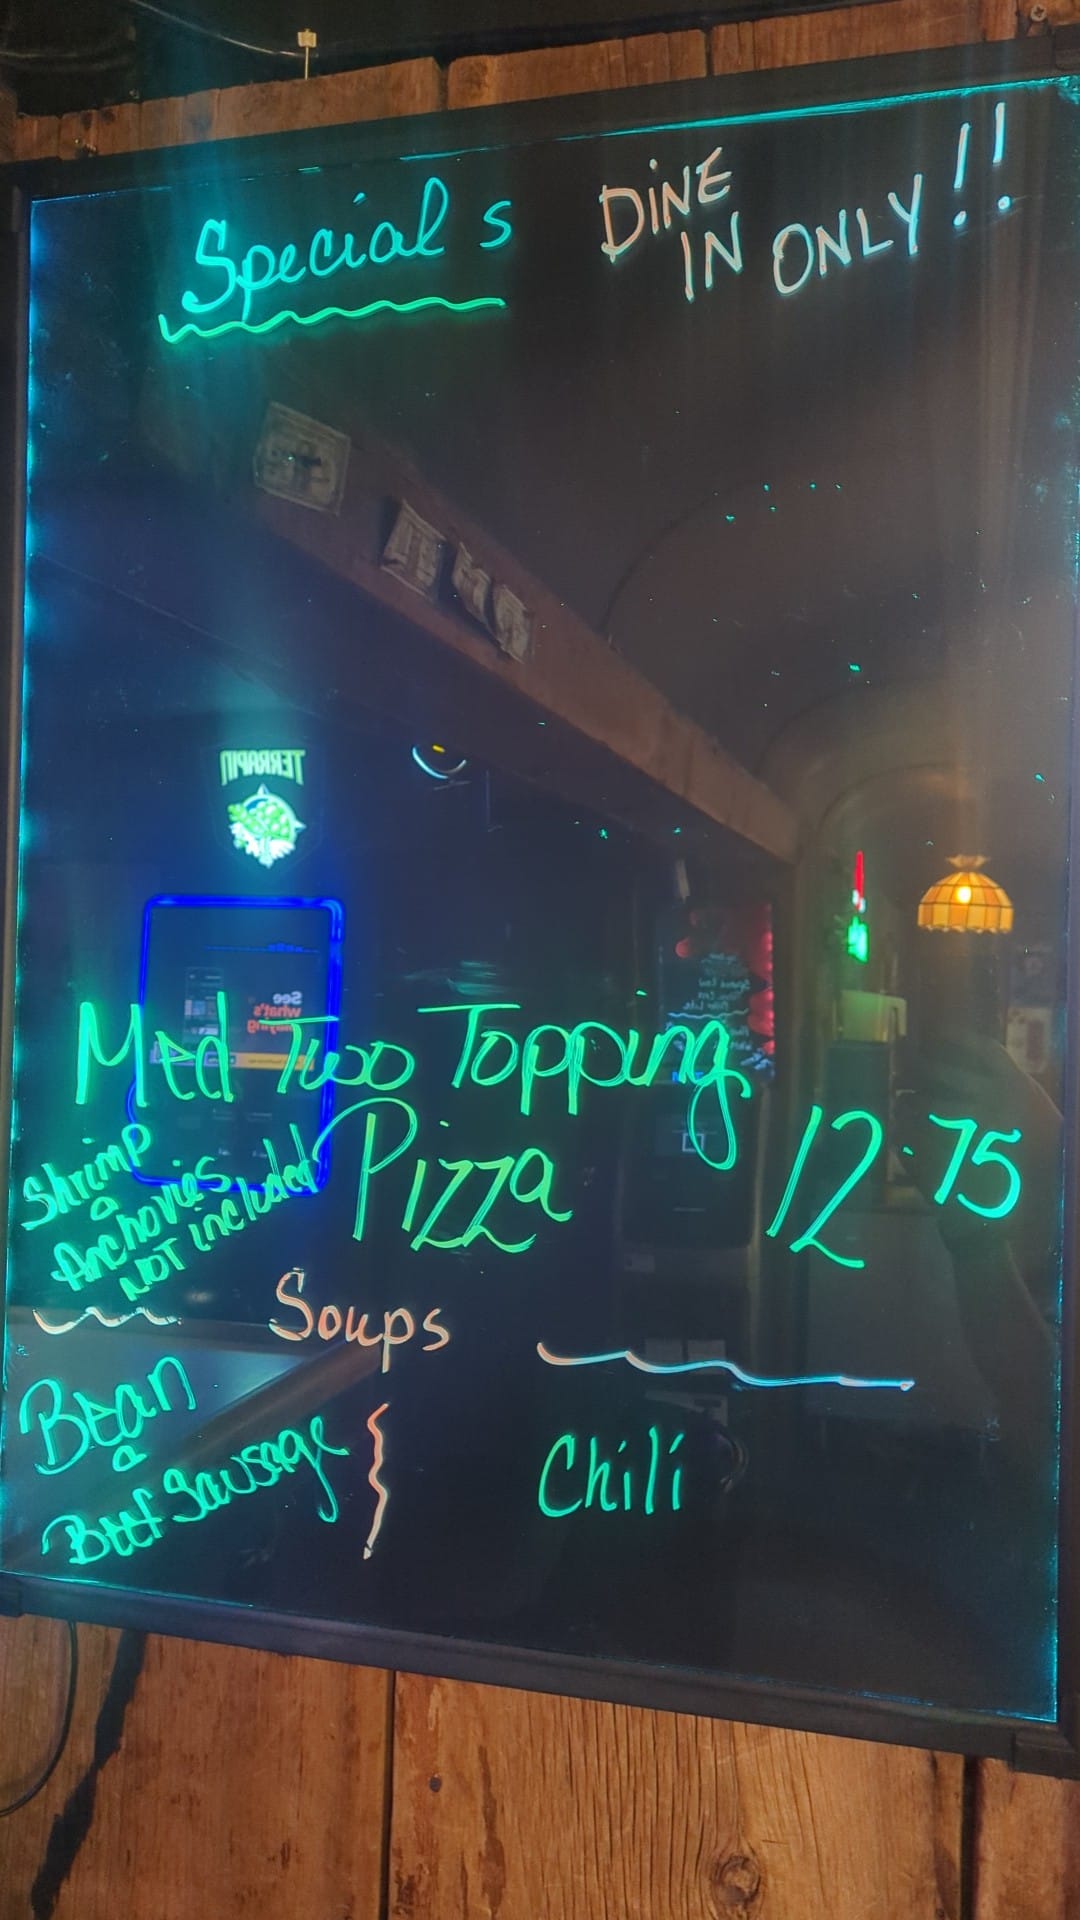 Specials
DiNE
IN ONLY!!
TERRAPIN
See
what's
Med Two Topping
Pizza 12.75
Shrimp
&
Anchovies
NOT included
Soups
Bean
&
Beef Sausage
Chili